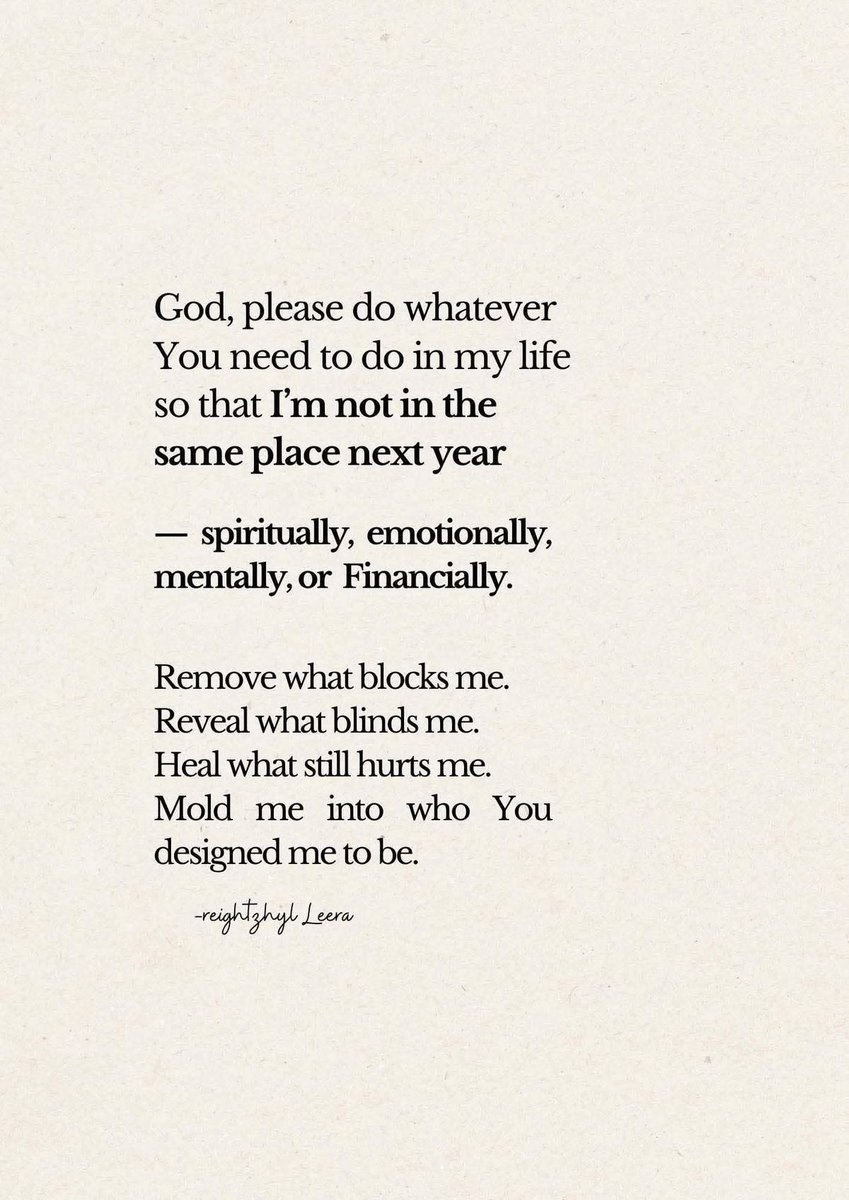 God, please do whatever
You need to do in my life
so that I'm not in the
same place next year
— spiritually, emotionally,
mentally, or Financially.
Remove what blocks me.
Reveal what blinds me.
Heal what still hurts me.
Mold me into who You
designed me to be.
-reightzhyl Leera